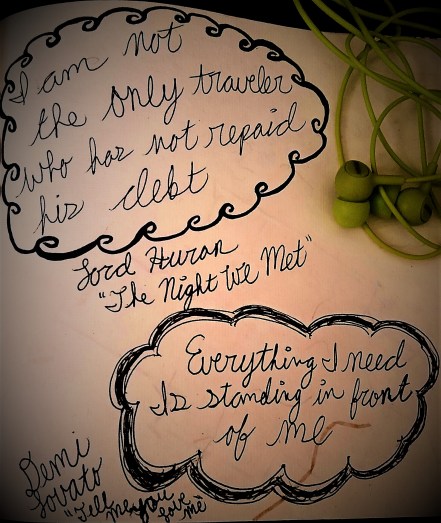 I am not
the only traveler
who has not repaid
his debt
Lord Huron
"The Night We Met"
Everything I need
Is standing in front
of me
Demi
Lovato
"Tell me you love me"